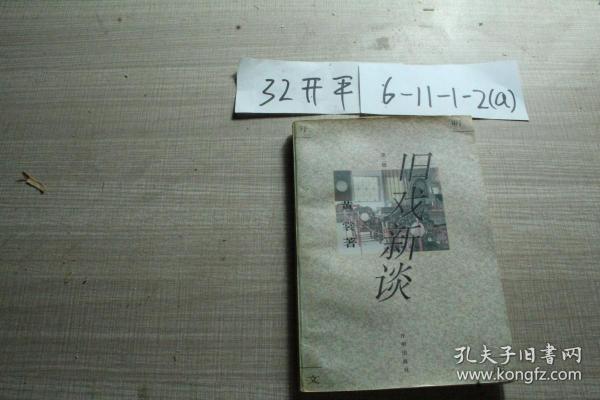 32开平
6-11-1-2(a)
开
明
文
旧戏新谈
黄裳著
开明出版社
孔夫子旧书网
www.kongfz.com